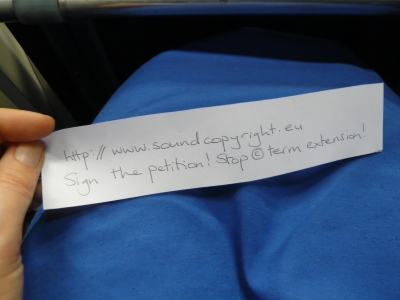 http://www.soundcopyright.eu
Sign the petition! Stop © term extension!